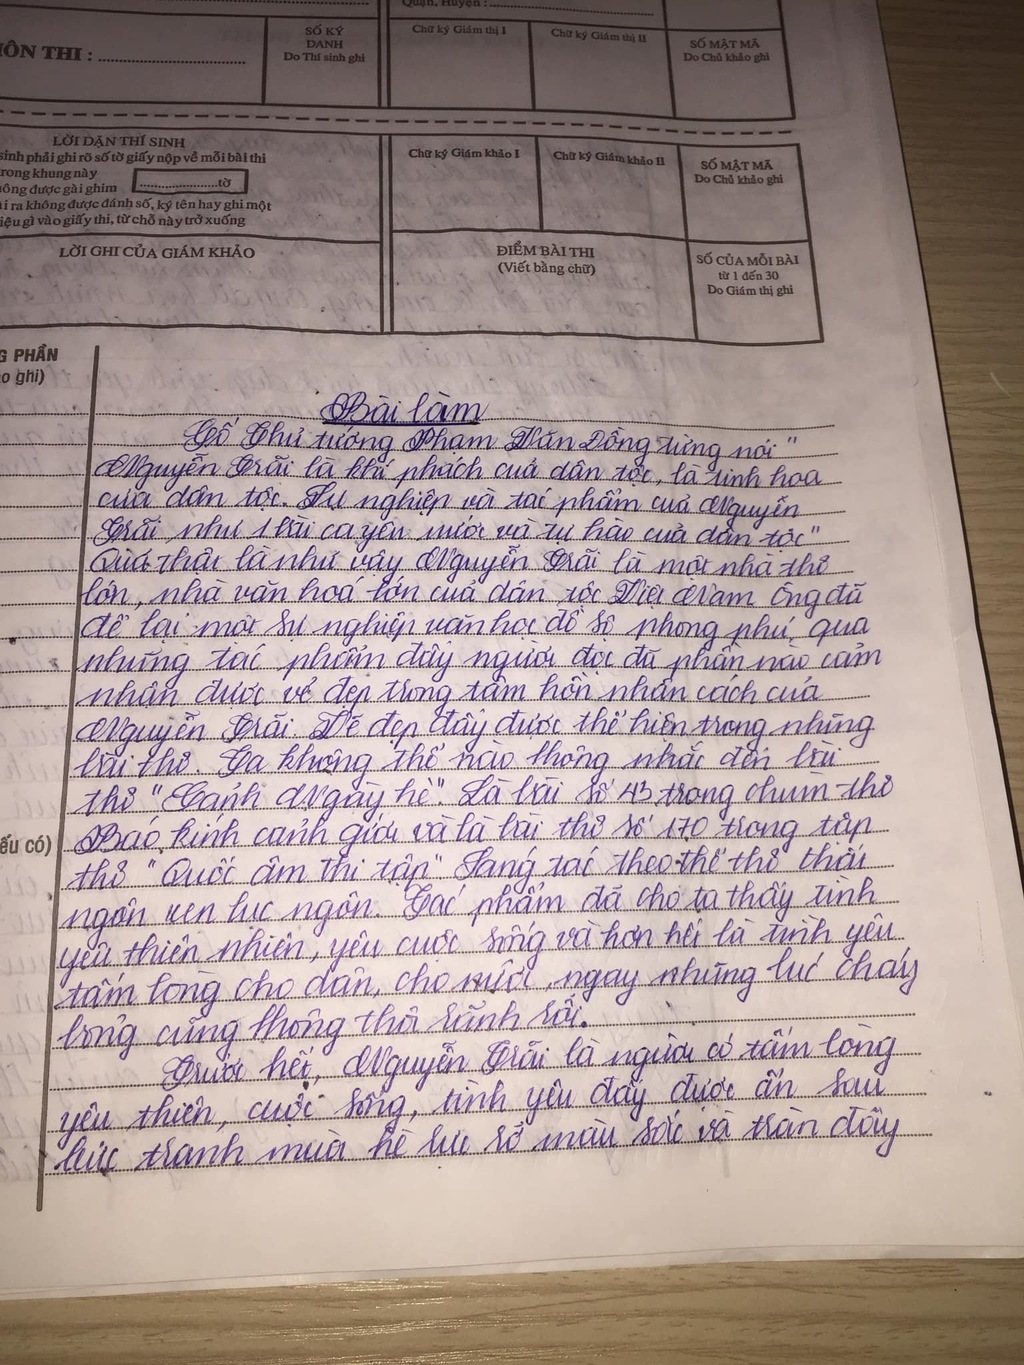 Quận, Huyện :
ÔN THI :
SỐ KÝ
DANH
Do Thí sinh ghi
Chữ ký Giám thị I
Chữ ký Giám thị II
SỐ MẬT MÃ
Do Chủ khảo ghi
LỜI DẶN THÍ SINH
sinh phải ghi rõ số tờ giấy nộp về mỗi bài thi
trong khung này
tờ
ông được gài ghim
ài ra không được đánh số, ký tên hay ghi một
iệu gì vào giấy thi, từ chỗ này trở xuống
Chữ ký Giám khảo I
Chữ ký Giám khảo II
SỐ MẬT MÃ
Do Chủ khảo ghi
LỜI GHI CỦA GIÁM KHẢO
ĐIỂM BÀI THI
(Viết bằng chữ)
SỐ CỦA MỖI BÀI
từ 1 đến 30
Do Giám thị ghi
G PHẦN
o ghi)
ếu có)
Bài làm
Cố Thủ tướng Phạm Văn Đồng từng nói "
Nguyễn Trãi là khí phách của dân tộc, là tinh hoa
của dân tộc. Sự nghiệp và tác phẩm của Nguyễn
Trãi như 1 bài ca yêu nước và tự hào của dân tộc"
Quả thật là như vậy Nguyễn Trãi là một nhà thơ
lớn, nhà văn hoá lớn của dân tộc Việt Nam ông đã
để lại một sự nghiệp văn học đồ sộ phong phú, qua
những tác phẩm đây người đọc đã phần nào cảm
nhận được vẻ đẹp trong tâm hồn nhân cách của
Nguyễn Trãi. Vẻ đẹp đấy được thể hiện trong những
bài thơ. Ta không thể nào không nhắc đến bài
thơ "Cảnh Ngày hè". Là bài số 43 trong chùm thơ
Bảo kính cảnh giới và là bài thơ số 170 trong tập
thơ "Quốc âm thi tập" Sáng tác theo thể thơ thất
ngôn xen lục ngôn. Tác phẩm đã cho ta thấy tình
yêu thiên nhiên, yêu cuộc sống và hơn hết là tình yêu
tấm lòng cho dân, cho nước, ngay những lúc cháy
bỏng cũng không thôi sãnh sôi.
Trước hết, Nguyễn Trãi là người có tấm lòng
yêu thiên, cuộc sống, tình yêu đấy được ẩn sau
bức tranh mùa hè rực rỡ màu sắc và tràn đầy